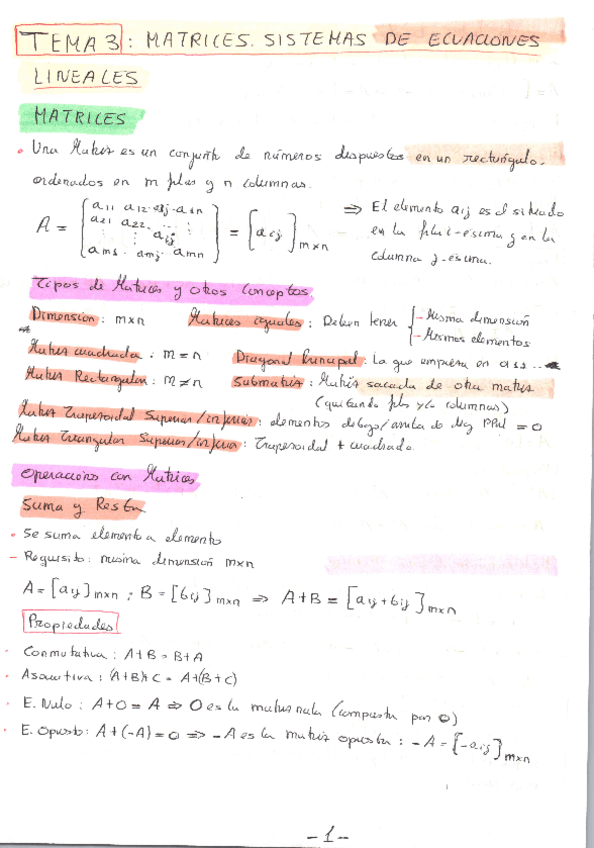 TEMA 3: MATRICES. SISTEMAS DE ECUACIONES
LINEALES
MATRICES
• Una Matriz es un conjunto de números dispuestos en un rectángulo.
ordenados en m filas y n columnas.
A = [a11 a12 a1j a1n; a21 a22 ...; aij; am1 amj amn] = [aij] m×n ⇒ El elemento aij es el situado
en la fila i-esima y en la
columna j-esima.
Tipos de Matrices y otros conceptos.
Dimension: m×n Matrices iguales: Deben tener { - Misma dimensión
- Mismos elementos
Matriz cuadrada: m = n Diagonal Principal: La que empieza en a11...
Matriz Rectangular: m ≠ n Submatriz: Matriz sacada de otra matriz
(quitando filas y/o columnas)
Matriz Trapezoidal Superior/inferior: elementos debajo/arriba de diag PPal = 0
Matriz Triangular Superior/inferior: Trapezoidal + cuadrada.
Operaciones con Matrices
Suma y Resta
• Se suma elemento a elemento
- Requisito: misma dimensión m×n
A = [aij] m×n ; B = [bij] m×n ⇒ A+B = [aij + bij] m×n
Propiedades
· Conmutativa: A+B = B+A
· Asociativa: (A+B)+C = A+(B+C)
· E. Nulo: A+O = A ⇒ O es la matriz nula (compuesta por 0)
· E. Opuesto: A+(-A) = 0 ⇒ -A es la matriz opuesta: -A = [-aij] m×n
-1-